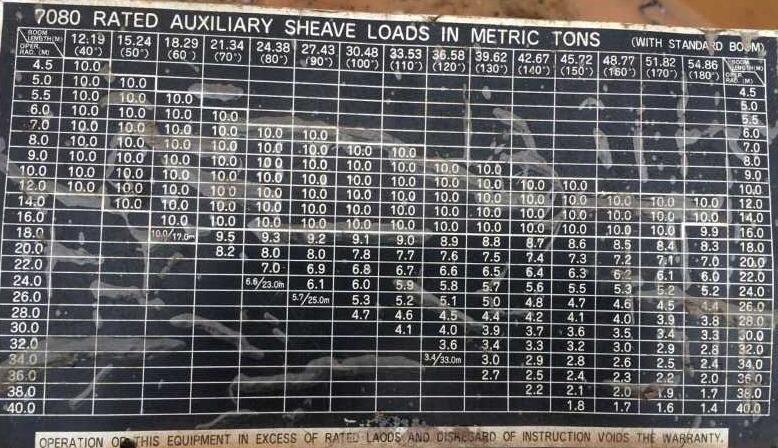 7080 RATED AUXILIARY SHEAVE LOADS IN METRIC TONS (WITH STANDARD BOOM)
BOOM LENGTH(M) 12.19 15.24 18.29 21.34 24.38 27.43 30.48 33.53 36.58 39.62 42.67 45.72 48.77 51.82 54.86 BOOM LENGTH(M)
OPER. RAD. (M) (40°) (50°) (60°) (70°) (80°) (90°) (100°) (110°) (120°) (130°) (140°) (150°) (160°) (170°) (180°) OPER. RAD. (M)
4.5 10.0 4.5
5.0 10.0 10.0 5.0
5.5 10.0 10.0 10.0 5.5
6.0 10.0 10.0 10.0 10.0 6.0
7.0 10.0 10.0 10.0 10.0 10.0 10.0 7.0
8.0 10.0 10.0 10.0 10.0 10.0 10.0 10.0 10.0 8.0
9.0 10.0 10.0 10.0 10.0 10.0 10.0 10.0 10.0 10.0 10.0 9.0
10.0 10.0 10.0 10.0 10.0 10.0 10.0 10.0 10.0 10.0 10.0 10.0 10.0 10.0
12.0 10.0 10.0 10.0 10.0 10.0 10.0 10.0 10.0 10.0 10.0 10.0 10.0 10.0 10.0 10.0 12.0
14.0 10.0 10.0 10.0 10.0 10.0 10.0 10.0 10.0 10.0 10.0 10.0 10.0 10.0 10.0 14.0
16.0 10.0 10.0 10.0 10.0 10.0 10.0 10.0 10.0 10.0 10.0 10.0 10.0 9.9 16.0
18.0 10.0/17.0m 9.5 9.3 9.2 9.1 9.0 8.9 8.8 8.7 8.6 8.5 8.4 8.3 18.0
20.0 8.2 8.0 8.0 7.8 7.7 7.6 7.5 7.4 7.3 7.2 7.1 7.0 20.0
22.0 7.0 6.9 6.8 6.7 6.6 6.5 6.4 6.3 6.2 6.1 6.0 22.0
24.0 6.6/23.0m 6.1 6.0 5.9 5.8 5.7 5.6 5.5 5.3 5.2 5.2 24.0
26.0 5.7/25.0m 5.3 5.2 5.1 5.0 4.8 4.7 4.6 4.5 4.4 26.0
28.0 4.7 4.6 4.5 4.4 4.2 4.1 4.0 3.9 3.8 28.0
30.0 4.1 4.0 3.9 3.7 3.6 3.5 3.4 3.3 30.0
32.0 3.6 3.4 3.3 3.2 3.0 2.9 2.8 32.0
34.0 3.4/33.0m 3.0 2.9 2.8 2.6 2.5 2.4 34.0
36.0 2.7 2.5 2.4 2.3 2.2 2.0 36.0
38.0 2.2 2.1 2.0 1.9 1.7 38.0
40.0 1.8 1.7 1.6 1.4 40.0
OPERATION OF THIS EQUIPMENT IN EXCESS OF RATED LAODS AND DISREGARD OF INSTRUCTION VOIDS THE WARRANTY.